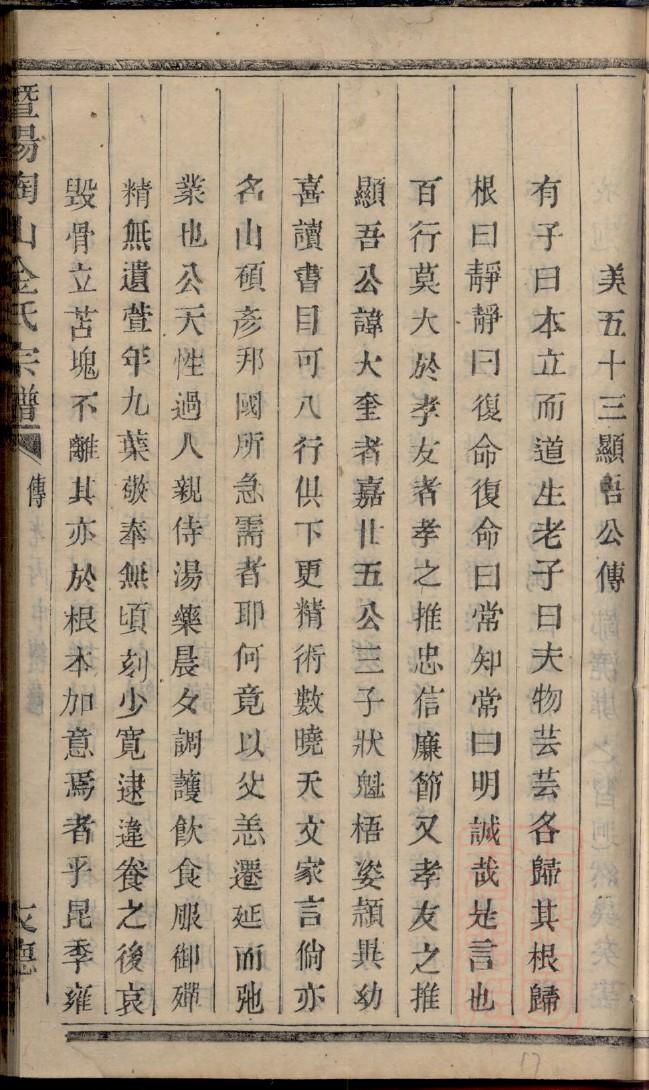 美五十三顯吾公傳
有子曰本立而道生老子曰夫物芸芸各歸其根歸
根曰靜靜曰復命復命曰常知常曰明誠哉是言也
百行莫大於孝友者孝之推忠信廉節又孝友之推
顯吾公諱大奎者嘉廿五公三子狀魁梧姿頴異幼
喜讀書目可八行俱下更精術數曉天文家言倘亦
名山碩彥邦國所急需者耶何竟以父恙遷延而弛
業也公天性過人親侍湯藥晨夕調護飲食服御殫
精無遺萱年九葉敬奉無頃刻少寬逮違養之後哀
毀骨立苫塊不離其亦於根本加意焉者乎昆季雍
暨陽陶山金氏宗譜 傳 文德
17